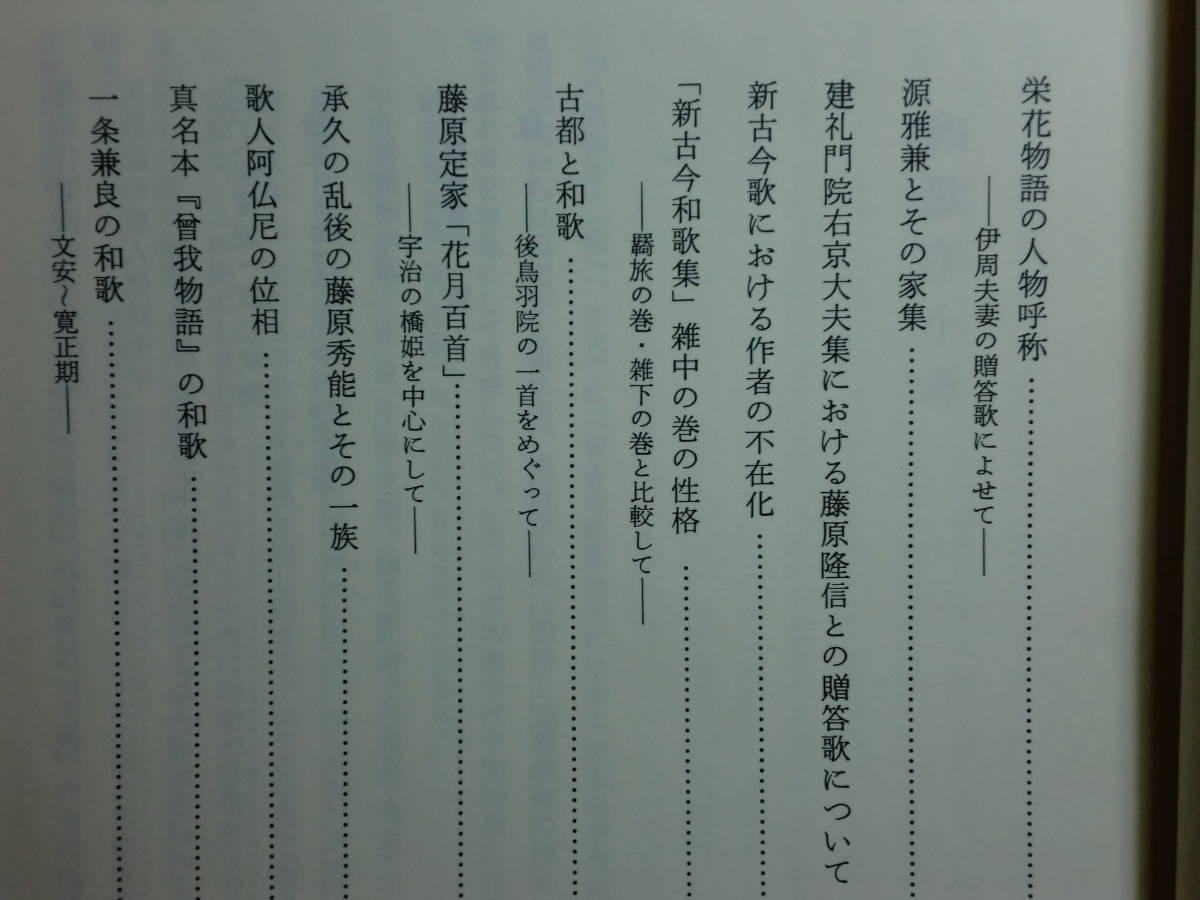 栄花物語の人物呼称……………………………………
――伊周夫妻の贈答歌によせて――
源雅兼とその家集……………………………………
建礼門院右京大夫集における藤原隆信との贈答歌について
新古今歌における作者の不在化……………………………………
「新古今和歌集」雑中の巻の性格……………………………………
――羇旅の巻・雑下の巻と比較して――
古都と和歌……………………………………
――後鳥羽院の一首をめぐって――
藤原定家「花月百首」……………………………………
――宇治の橋姫を中心にして――
承久の乱後の藤原秀能とその一族……………………………………
歌人阿仏尼の位相……………………………………
真名本『曾我物語』の和歌……………………………………
一条兼良の和歌……………………………………
――文安~寛正期――